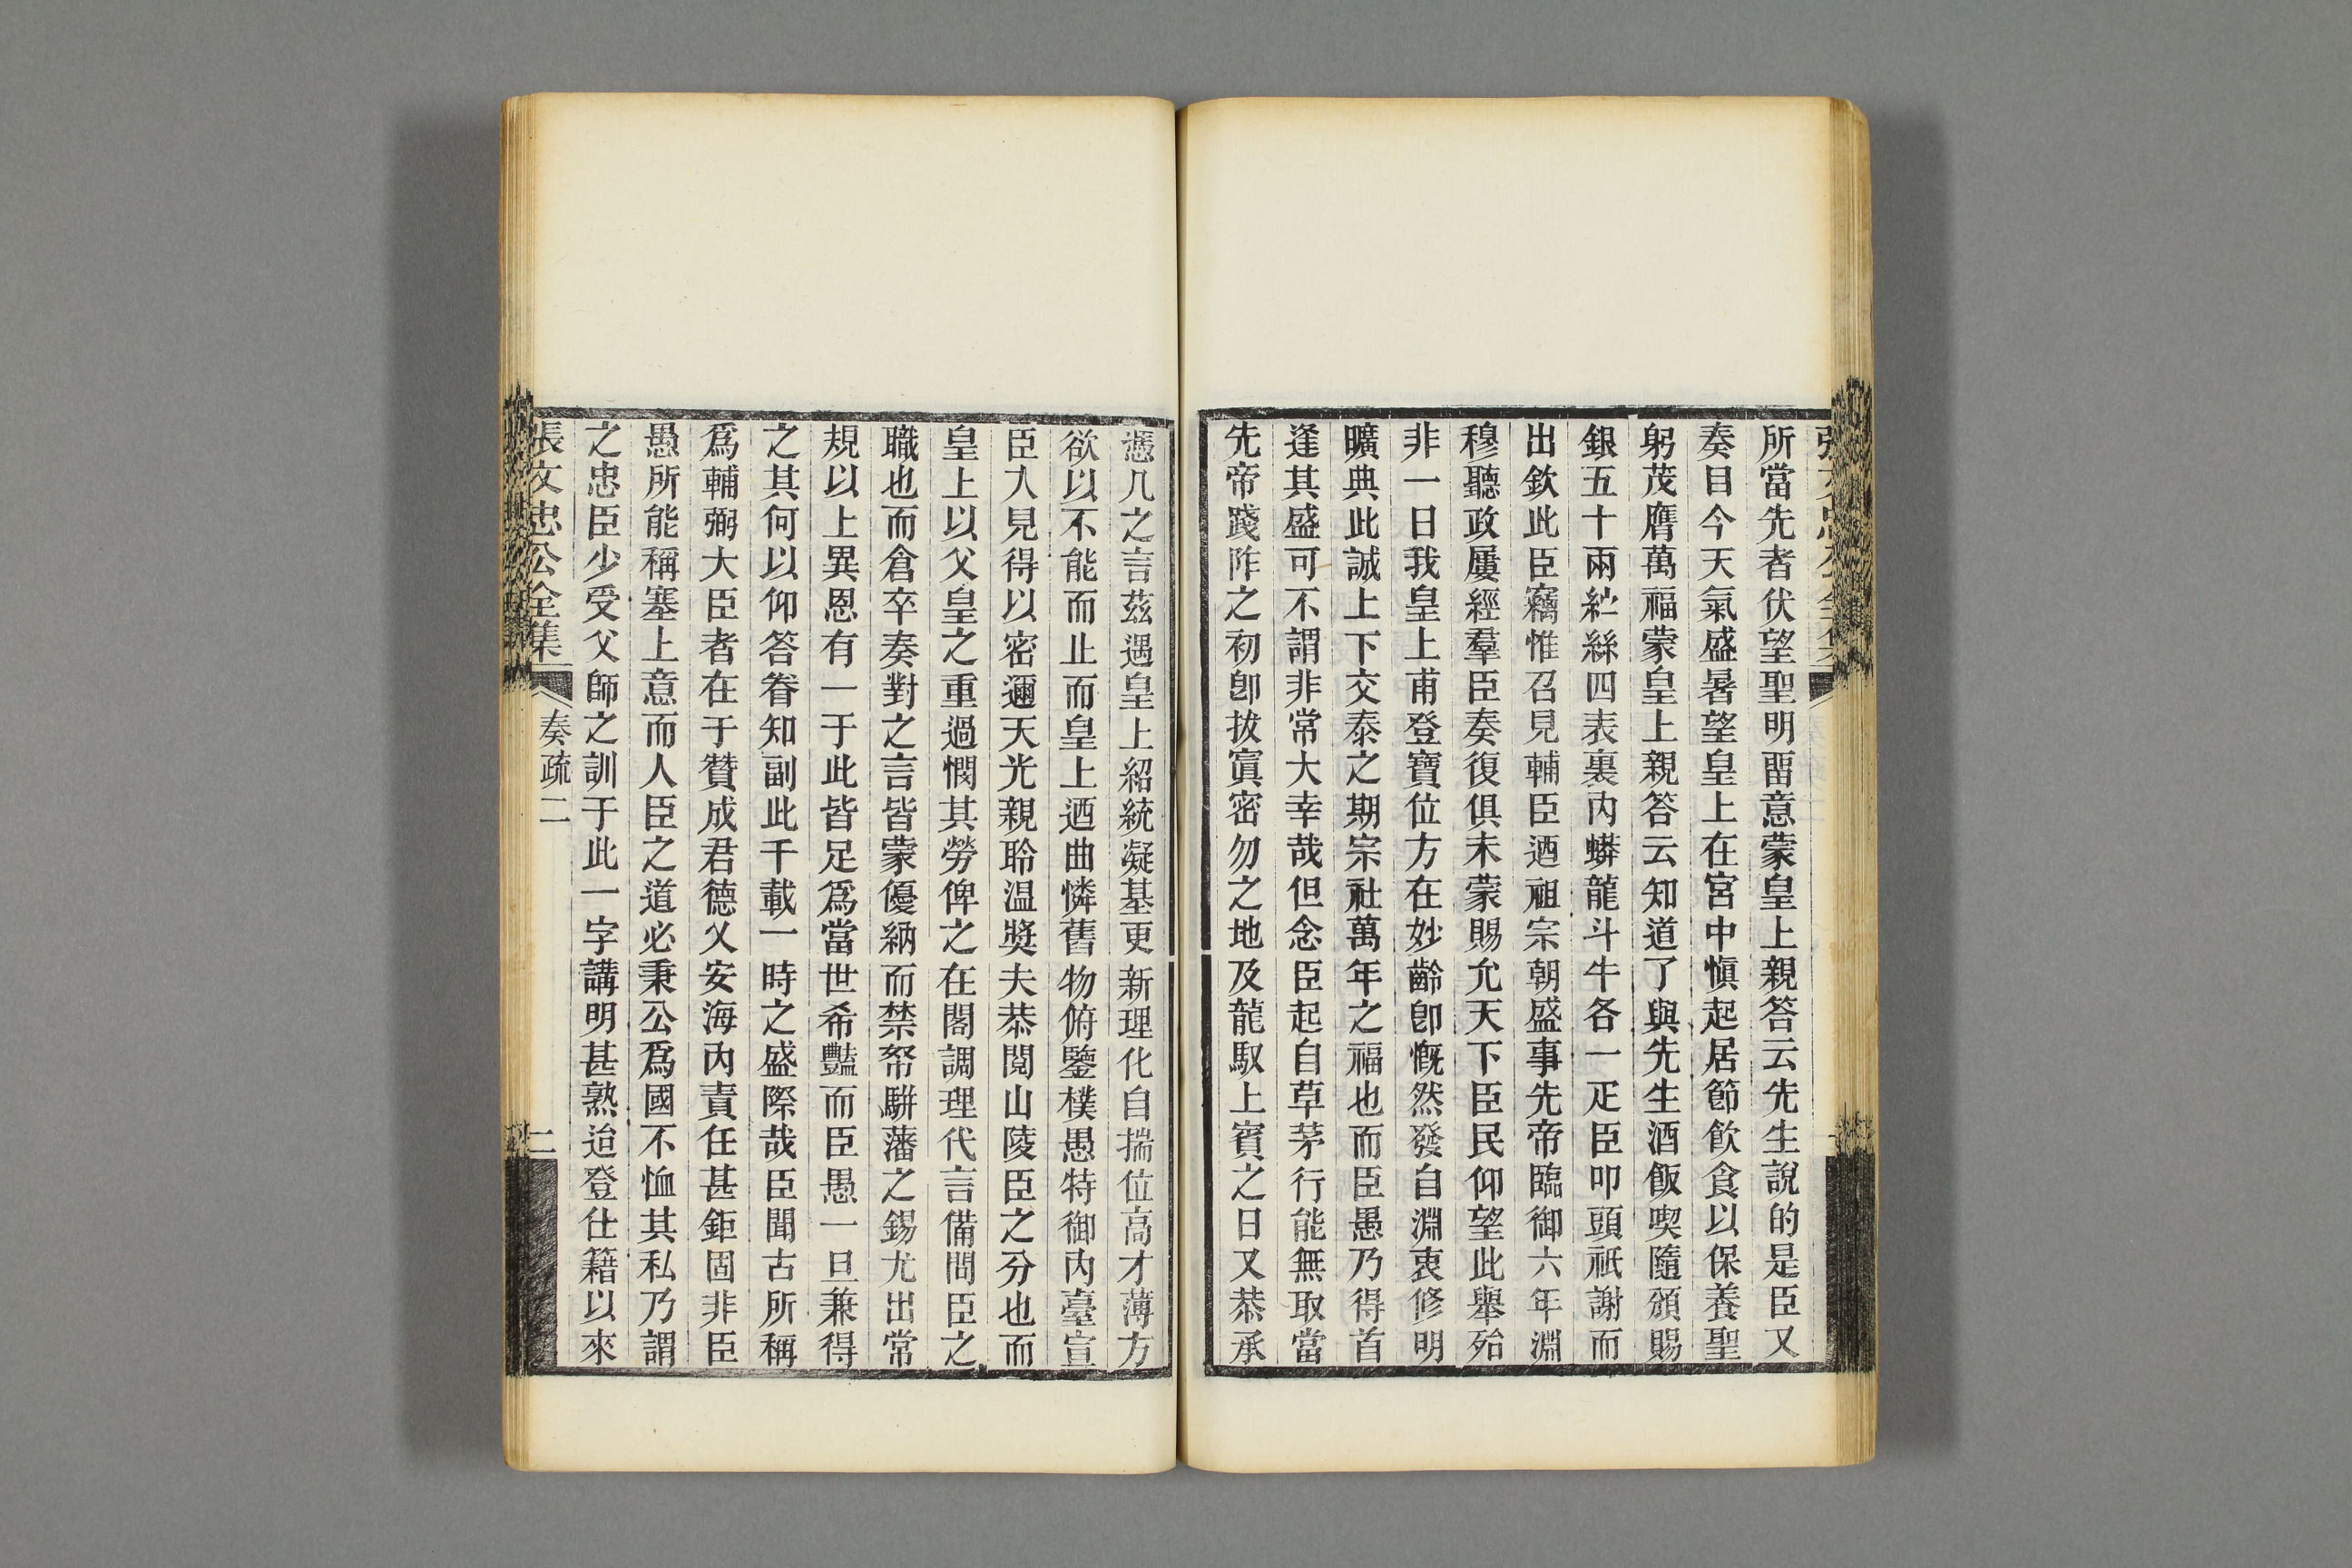 所當先者伏望聖明畱意蒙皇上親答云先生說的是臣又
奏目今天氣盛暑望皇上在宮中愼起居節飮食以保養聖
躬茂膺萬福蒙皇上親答云知道了與先生酒飯喫隨頒賜
銀五十兩紵絲四表裏內蟒龍斗牛各一疋臣叩頭祇謝而
出欽此臣竊惟召見輔臣迺祖宗朝盛事先帝臨御六年淵
穆聽政屢經羣臣奏復俱未蒙賜允天下臣民仰望此舉殆
非一日我皇上甫登寶位方在妙齡卽慨然發自淵衷修明
曠典此誠上下交泰之期宗社萬年之福也而臣愚乃得首
逢其盛可不謂非常大幸哉但念臣起自草茅行能無取當
先帝踐阼之初卽拔寘密勿之地及龍馭上賓之日又恭承
憑几之言茲遇皇上紹統凝基更新理化自揣位高才薄方
欲以不能而止而皇上迺曲憐舊物俯鑒樸愚特御內臺宣
臣入見得以密邇天光親聆温奬夫恭閱山陵臣之分也而
皇上以父皇之重過憫其勞俾之在閣調理代言備問臣之
職也而倉卒奏對之言皆蒙優納而禁帑駢蕃之錫尤出常
規以上異恩有一于此皆足爲當世希豔而臣愚一旦兼得
之其何以仰答眷知副此千載一時之盛際哉臣聞古所稱
爲輔弼大臣者在于贊成君德乂安海內責任甚鉅固非臣
愚所能稱塞上意而人臣之道必秉公爲國不恤其私乃謂
之忠臣少受父師之訓于此一字講明甚熟迨登仕籍以來
張文忠公全集
奏疏二
二